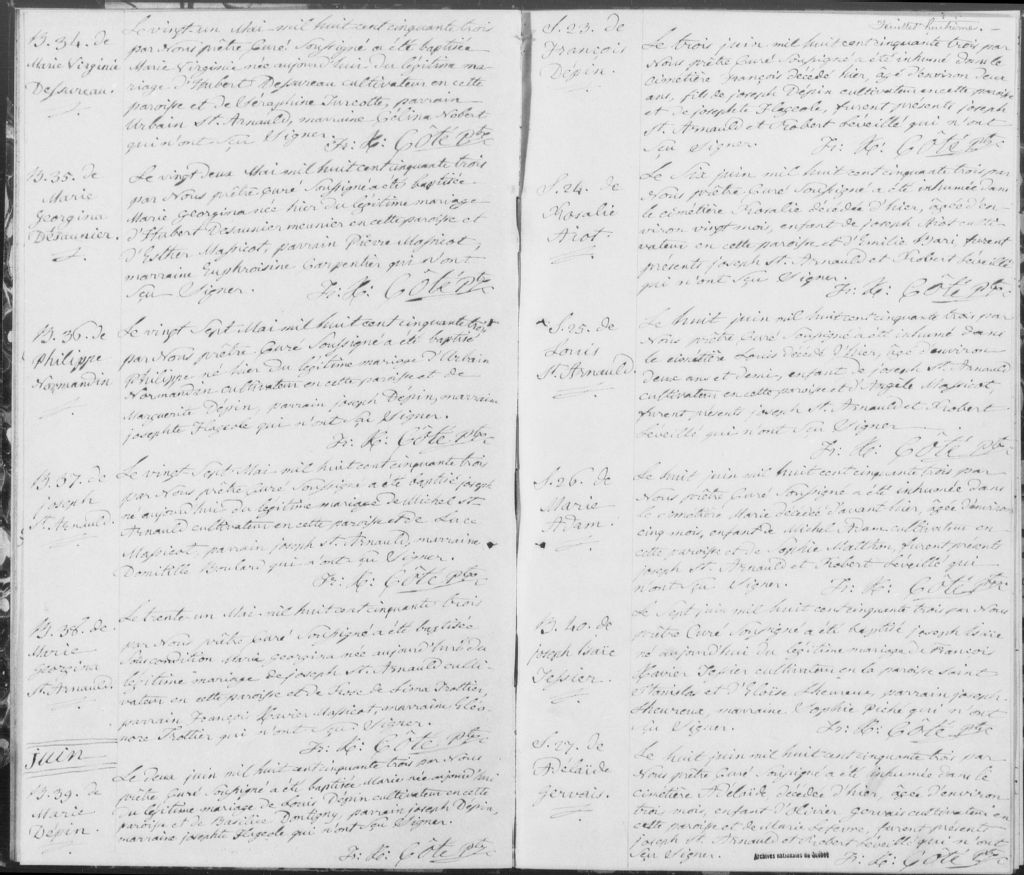 B. 34. de
Marie Virginie
Dessureau.
Le vingt un Mai mil huit cent cinquante trois
par Nous prêtre Curé Soussigné a été baptisée
Marie Virginie née aujourd'hui du légitime ma-
riage d'Hubert Dessureau cultivateur en cette
paroisse et de Séraphine Turcotte, parrain
Urbain St. Arnauld, marraine Célina Hébert
qui n'ont Sçu Signer.
Fr: H: Côté ptre
B. 35. de
Marie
Georgina
Désaunier.
Le vingt deux Mai mil huit cent cinquante trois
par Nous prêtre Curé Soussigné a été baptisée
Marie Georgina née hier du légitime mariage
d'Hubert Desaunier meunier en cette paroisse et
d'Esther Massicot, parrain Pierre Massicot,
marraine Euphroisine Carpentier qui n'ont
Sçu Signer.
Fr: H: Côté ptre
B. 36. de
Philippe
Normandin
Le vingt Sept Mai mil huit cent cinquante trois
par Nous prêtre Curé Soussigné a été baptisé
Philippe né hier du légitime mariage d'Urbain
Normandin cultivateur en cette paroisse et de
Marguerite Dépin, parrain joseph Dépin, marraine
josephte Flageole qui n'ont Sçu Signer.
Fr: H: Côté ptre
B. 37. de
joseph
St. Arnauld.
Le vingt Sept Mai mil huit cent cinquante trois
par Nous prêtre Curé Soussigné a été baptisé joseph
né aujourd'hui du légitime mariage de Michel St.
Arnauld cultivateur en cette paroisse et de Luce
Massicot, parrain joseph St. Arnauld, marraine
Domitille Boulard qui n'ont Sçu Signer.
Fr: H: Côté ptre
B. 38. de
Marie
Georgina
St. Arnauld.
Le trente un Mai mil huit cent cinquante trois
par Nous prêtre Curé Soussigné a été baptisée
Sous condition Marie georgina née aujourd'hui du
légitime mariage de joseph St. Arnauld culti-
vateur en cette paroisse et de Rose de Lima Trottier,
parrain François Xavier Massicot, marraine Eléo-
nore Trottier qui n'ont Sçu Signer.
Fr: H: Côté ptre
juin
B. 39. de
Marie
Dépin.
Le deux juin mil huit cent cinquante trois par Nous
prêtre Curé Soussigné a été baptisée Marie née aujourd'hui
du légitime mariage de Louis Dépin cultivateur en cette
paroisse et de Basilice parrain joseph Dépin,
marraine josephte Flageole qui n'ont Sçu Signer.
Fr: H: Côté ptre
feuillet huitième.
S. 23. de
François
Dépin.
Le trois juin mil huit cent cinquante trois par
Nous prêtre Curé Soussigné a été inhumé dans le
cimétière François décédé hier, âgé d'environ deux
ans, fils de joseph Dépin cultivateur en cette paroisse
et de josephte Flageole, furent présents joseph
St. Arnauld et Robert Léveillé qui n'ont
Sçu Signer.
Fr: H: Côté ptre
S. 24. de
Rosalie
Ayot.
Le Six juin mil huit cent cinquante trois par
Nous prêtre Curé Soussigné a été inhumée dans
le cimétière Rosalie décédée d'hier, âgée d'en-
viron vingt mois, enfant de joseph Ayot culti-
vateur en cette paroisse et d'Emilie Bari, furent
présents joseph St. Arnauld et Robert Léveillé
qui n'ont Sçu Signer.
Fr: H: Côté ptre
S. 25. de
Louis
St. Arnauld.
Le huit juin mil huit cent cinquante trois par
Nous prêtre Curé Soussigné a été inhumé dans
le cimétière Louis décédé d'hier, âgé d'environ
deux ans et demi, enfant de joseph St. Arnauld
cultivateur en cette paroisse et d'Angèle Massicot,
furent présents joseph St. Arnauld et Robert
Léveillé qui n'ont Sçu Signer
Fr: H: Côté ptre
S. 26. de
Marie
Adam.
Le huit juin mil huit cent cinquante trois par
Nous prêtre Curé Soussigné a été inhumée dans
le cimétière Marie décédée d'avant hier, âgée d'environ
cinq mois, enfant de Michel Adam cultivateur en
cette paroisse et de Sophie Matthon, furent présents
joseph St. Arnauld et Robert Léveillé qui
n'ont Sçu Signer.
Fr: H: Côté ptre
B. 40. de
joseph Isaïe
Tessier.
Le Sept juin mil huit cent cinquante trois par Nous
prêtre Curé Soussigné a été baptisé joseph Isaïe
né aujourd'hui du légitime mariage de François
Xavier Tessier cultivateur en la paroisse Saint
Stanislas et d'Eloïse Lheureux, parrain joseph
Lheureux, marraine Sophie Piché qui n'ont
Sçu Signer.
Fr: H: Côté ptre
S. 27. de
Adélaïde
Gervais.
Le huit juin mil huit cent cinquante trois par
Nous prêtre Curé Soussigné a été inhumée dans le
cimétière Adélaïde décédée d'hier, âgée d'environ
trois mois, enfant d'Olivier Gervais cultivateur en
cette paroisse et de Marie Lefebvre, furent présents
joseph St. Arnauld et Robert Léveillé qui n'ont
Sçu Signer.
Fr: H: Côté ptre
Archives nationales du Québec